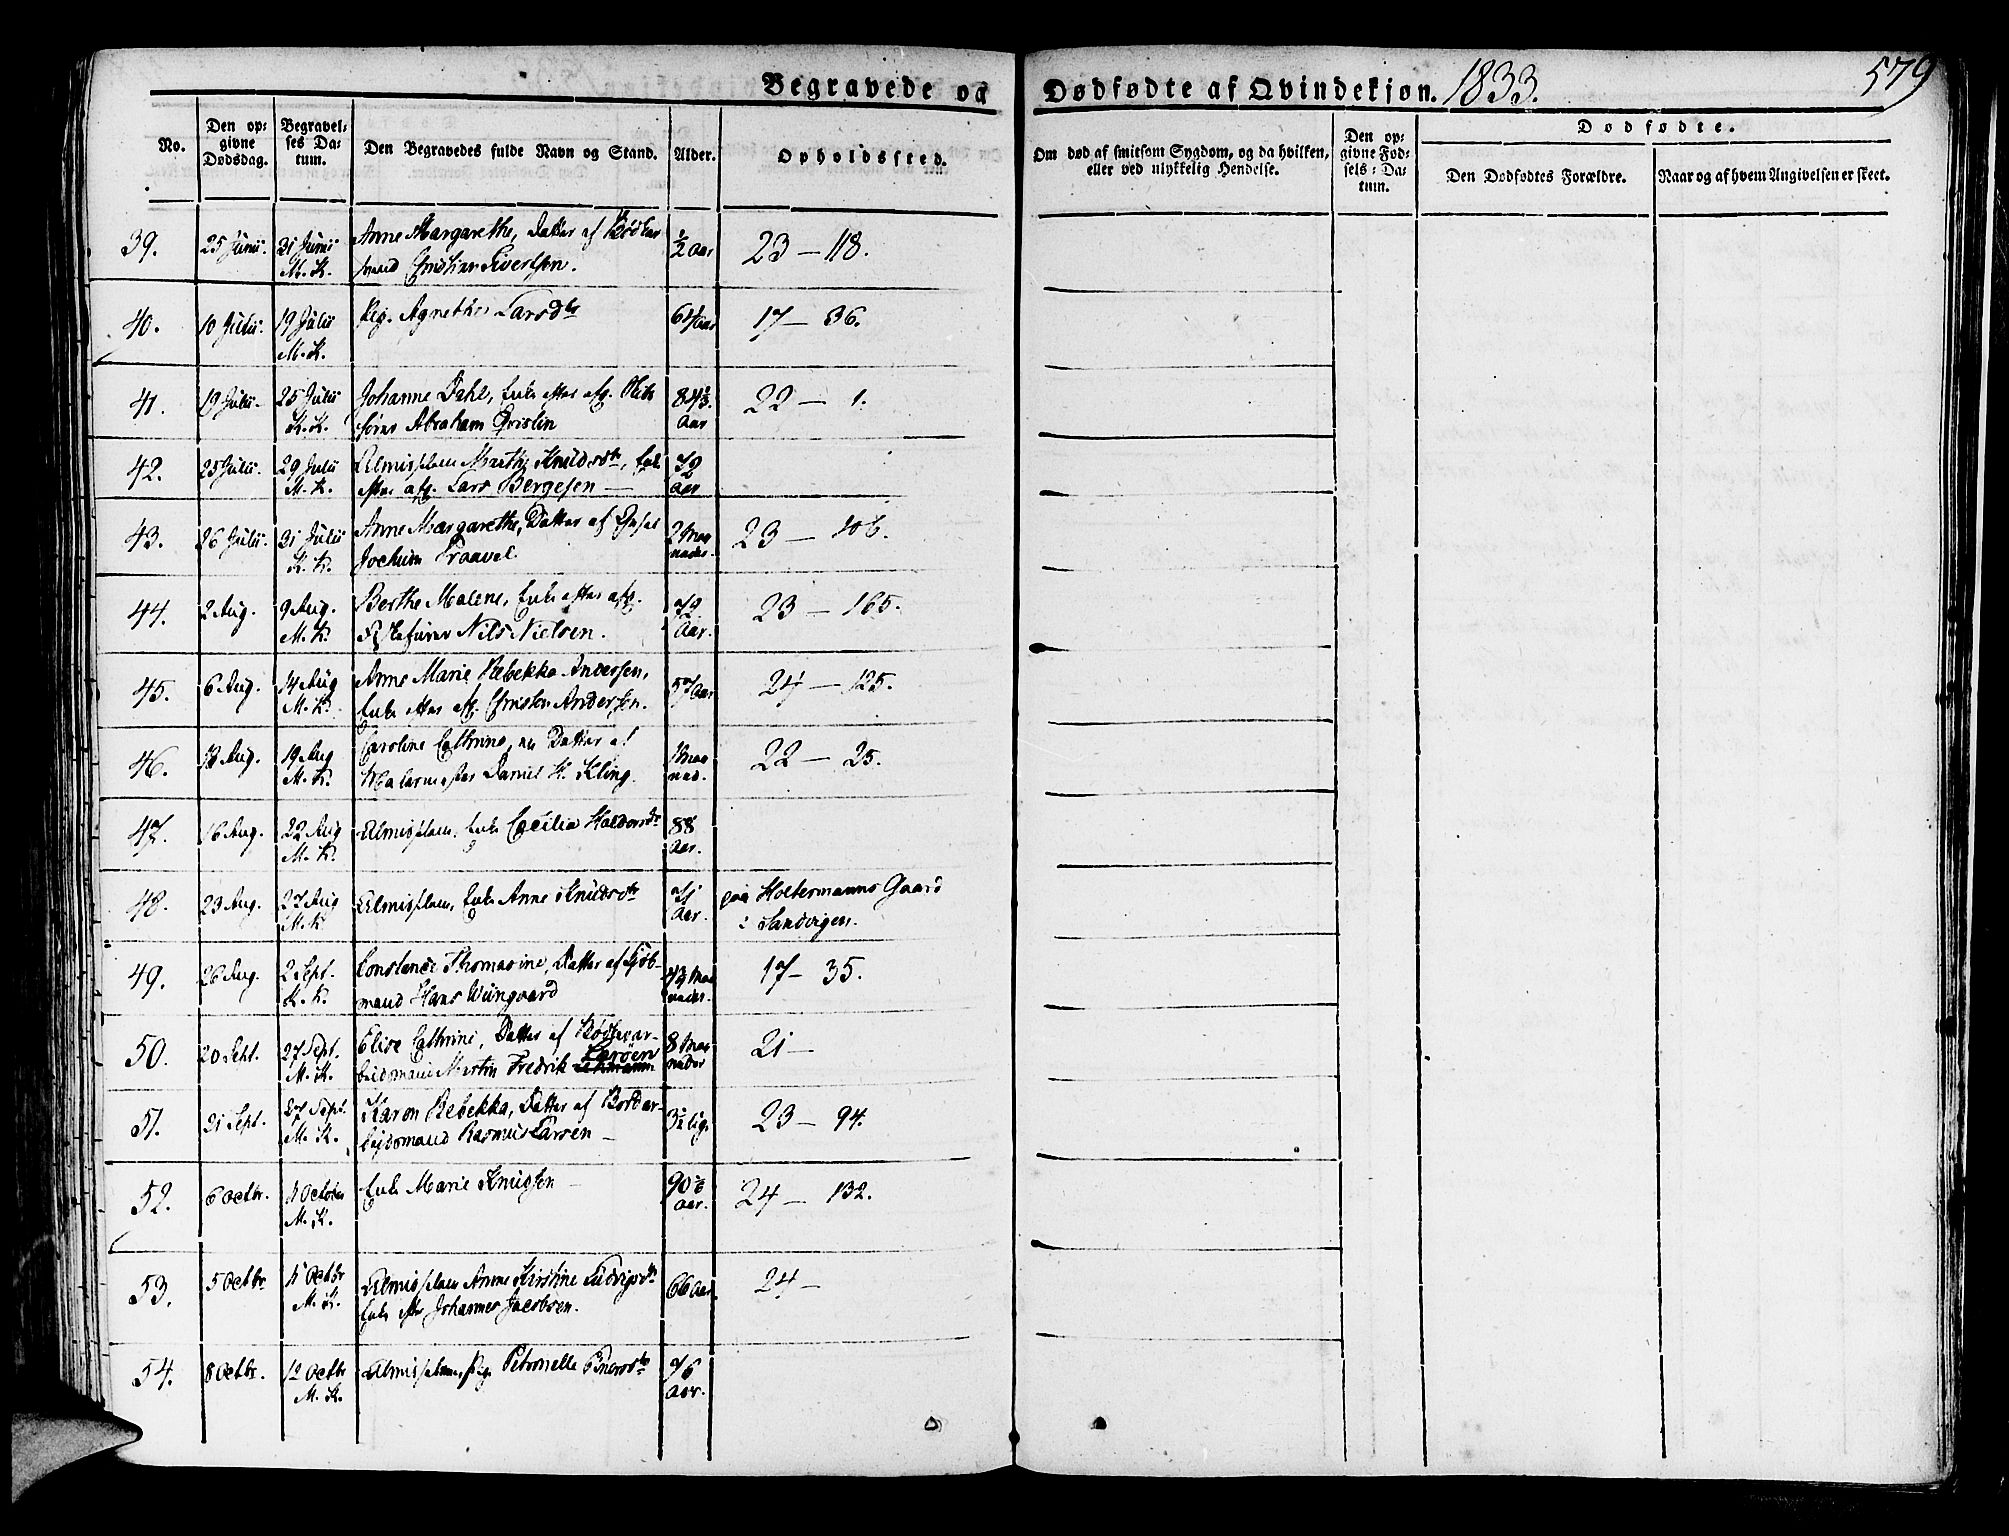 Begravede og Dødfødte af Qvindekjøn. 1833. 579
No.
Den op-
givne
Dødsdag.
Begravel-
ses Da-
tum.
Den Begravedes fulde Navn og Stand.
Alder.
Opholdssted.
Om død af smitsom Sygdom, og da hvilken,
eller ved ulykkelig Hendelse.
Den op-
givne Fød-
sels-Da-
tum.
Dødfødte.
Den Dødfødtes Forældre.
Naar og af hvem Angivelsen er skeet.
39. 25 Junii 31 Junii Anne Margarethe, Datter af ½ Aar 23 — 118.
M. K. mand Christian Sivertsen.
40. 10 Julii. 19 Julii Pig. Agnethe Larsdtr 61 Aar 17 — 36.
M. K.
41. 19 Julii. 25 Julii Johanne Dahl, Enke efter afg. 84½ 22 — 1.
K. K. Abraham Qvislin Aar
42. 25 Julii. 29 Julii Almislem Marthe Knudsdtr, Enk 72
M. K. efter afg. Lars Bergesen — Aar
43. 26 Julii. 31 Julii Anne Margarethe, Datter af 2 Maa 23 — 106.
K. K. Jochum Traavel. neder.
44. 2 Aug. 9 Aug. Berthe Malene, Enke efter afg. 72 23 — 165.
M. K. Nils Nielsen. Aar.
45. 6 Aug. 14 Aug Anne Marie Rebekka Andersen, 57 Aar 24 — 125.
M. K. Enke efter afg. Christen Andersen.
46. 13 Aug. 19 Aug Caroline Cathrine, en Datter af 22 — 25.
M. K. Malermester Daniel H. Kling. ned.
47. 16 Aug. 22 Aug Almislem, Enke Cecilia Haldorsdr 88
M. K. Aar.
48. 23 Aug. 27 Aug Almislem, Enke Anne Knudsdtr 71 paa Holtermanns Gaard
M. K. Aar. i Sandvigen.
49. 26 Aug. 2 Sept. Constance Thomasine, Datter af Kjøb- 17 — 35.
K. K. mand Hans Wiingaard neder.
50. 20 Sept. 27 Sept. Elise Cathrine, Datter af 8 Maa 21 —
Larsen
M. K. beidsmand Martin Fredrik Lehmann neder
51. 21 Sept. 27 Sept. Karen Rebekka, Datter af Bordar- 3½ lig. 23 — 94.
M. K. bejdsmand Rasmus Larsen —
52. 6 Octbr. 11 October Enke Marie Knudsen — 90½ 24 — 132.
M. K. Aar.
53. 5 Octbr 11 Octbr Almislem Anne Kirstine Ludvigsdtr 66 Aar. 24 —
M. K. Enke efter Johannes Jacobsen.
54. 8 Octbr. 12 Octbr Almislem, Pig. Petronelle Einersdtr 76
M. K. Aar.